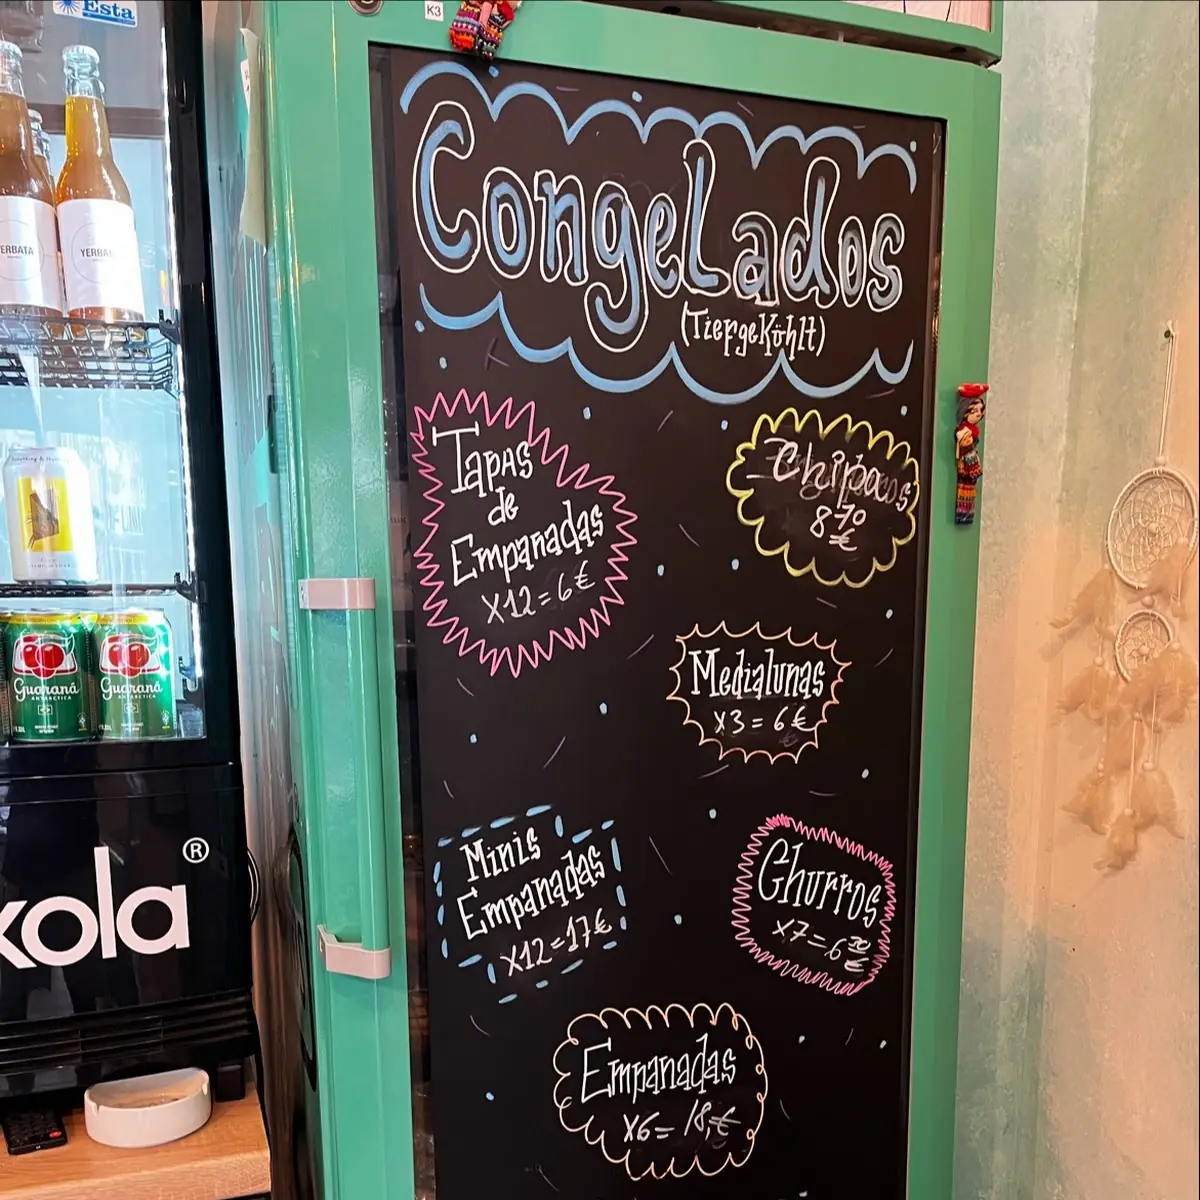 Esta
K3
YERBATA
YERBA
Guaraná
ANTARCTICA
Guaraná
ANTARCTICA
kola®
CongeLados
(TiefgeKühlt)
Tapas
de
Empanadas
x12=6€
Chipacos
8 70
€
Medialunas
x3=6€
Minis
Empanadas
x12=17€
Churros
x7=6 50
€
Empanadas
x6=18,€